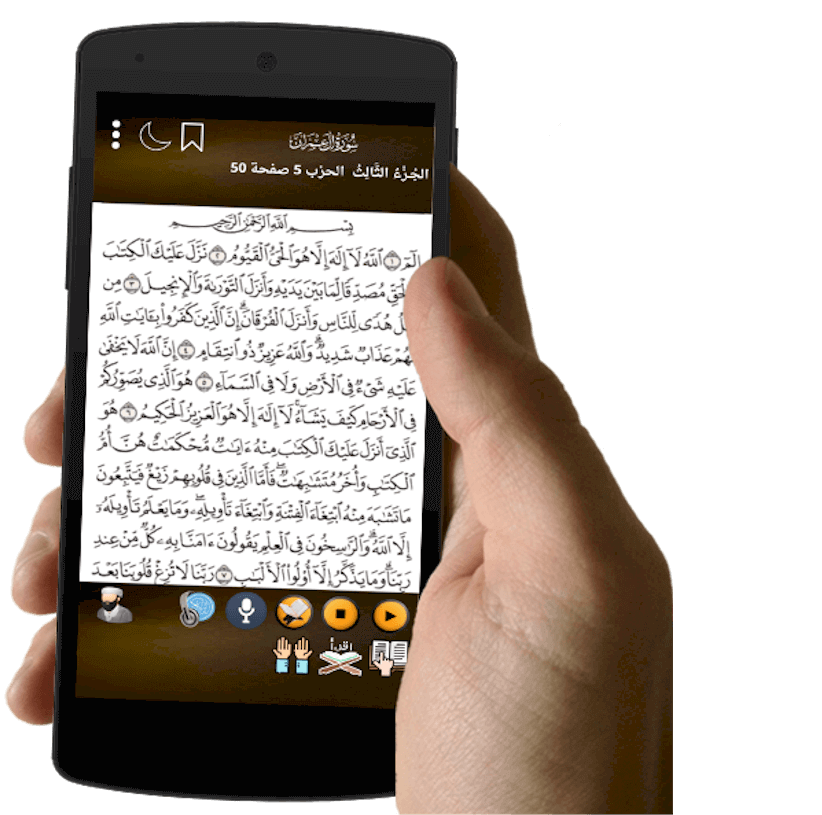 سُورَةُ آلِ عِمْرَانَ
الجُزْءُ الثَّالِثُ الحزب 5 صفحة 50
بِسْمِ اللَّهِ الرَّحْمَٰنِ الرَّحِيمِ
الٓمٓ ١ ٱللَّهُ لَآ إِلَٰهَ إِلَّا هُوَ ٱلْحَىُّ ٱلْقَيُّومُ ٢ نَزَّلَ عَلَيْكَ ٱلْكِتَٰبَ
لْحَقِّ مُصَدِّقًا لِّمَا بَيْنَ يَدَيْهِ وَأَنزَلَ ٱلتَّوْرَىٰةَ وَٱلْإِنجِيلَ ٣ مِن
لُ هُدًى لِّلنَّاسِ وَأَنزَلَ ٱلْفُرْقَانَ ۗ إِنَّ ٱلَّذِينَ كَفَرُوا۟ بِـَٔايَٰتِ ٱللَّهِ
هُمْ عَذَابٌ شَدِيدٌ ۗ وَٱللَّهُ عَزِيزٌ ذُو ٱنتِقَامٍ ٤ إِنَّ ٱللَّهَ لَا يَخْفَىٰ
عَلَيْهِ شَىْءٌ فِى ٱلْأَرْضِ وَلَا فِى ٱلسَّمَآءِ ٥ هُوَ ٱلَّذِى يُصَوِّرُكُمْ
فِى ٱلْأَرْحَامِ كَيْفَ يَشَآءُ ۚ لَآ إِلَٰهَ إِلَّا هُوَ ٱلْعَزِيزُ ٱلْحَكِيمُ ٦ هُوَ
ٱلَّذِىٓ أَنزَلَ عَلَيْكَ ٱلْكِتَٰبَ مِنْهُ ءَايَٰتٌ مُّحْكَمَٰتٌ هُنَّ أُمُّ
ٱلْكِتَٰبِ وَأُخَرُ مُتَشَٰبِهَٰتٌ ۖ فَأَمَّا ٱلَّذِينَ فِى قُلُوبِهِمْ زَيْغٌ فَيَتَّبِعُونَ
مَا تَشَٰبَهَ مِنْهُ ٱبْتِغَآءَ ٱلْفِتْنَةِ وَٱبْتِغَآءَ تَأْوِيلِهِۦ ۗ وَمَا يَعْلَمُ تَأْوِيلَهُۥٓ
إِلَّا ٱللَّهُ ۗ وَٱلرَّٰسِخُونَ فِى ٱلْعِلْمِ يَقُولُونَ ءَامَنَّا بِهِۦ كُلٌّ مِّنْ عِندِ
رَبِّنَا ۗ وَمَا يَذَّكَّرُ إِلَّآ أُو۟لُوا۟ ٱلْأَلْبَٰبِ ٧ رَبَّنَا لَا تُزِغْ قُلُوبَنَا بَعْدَ
اقرأ